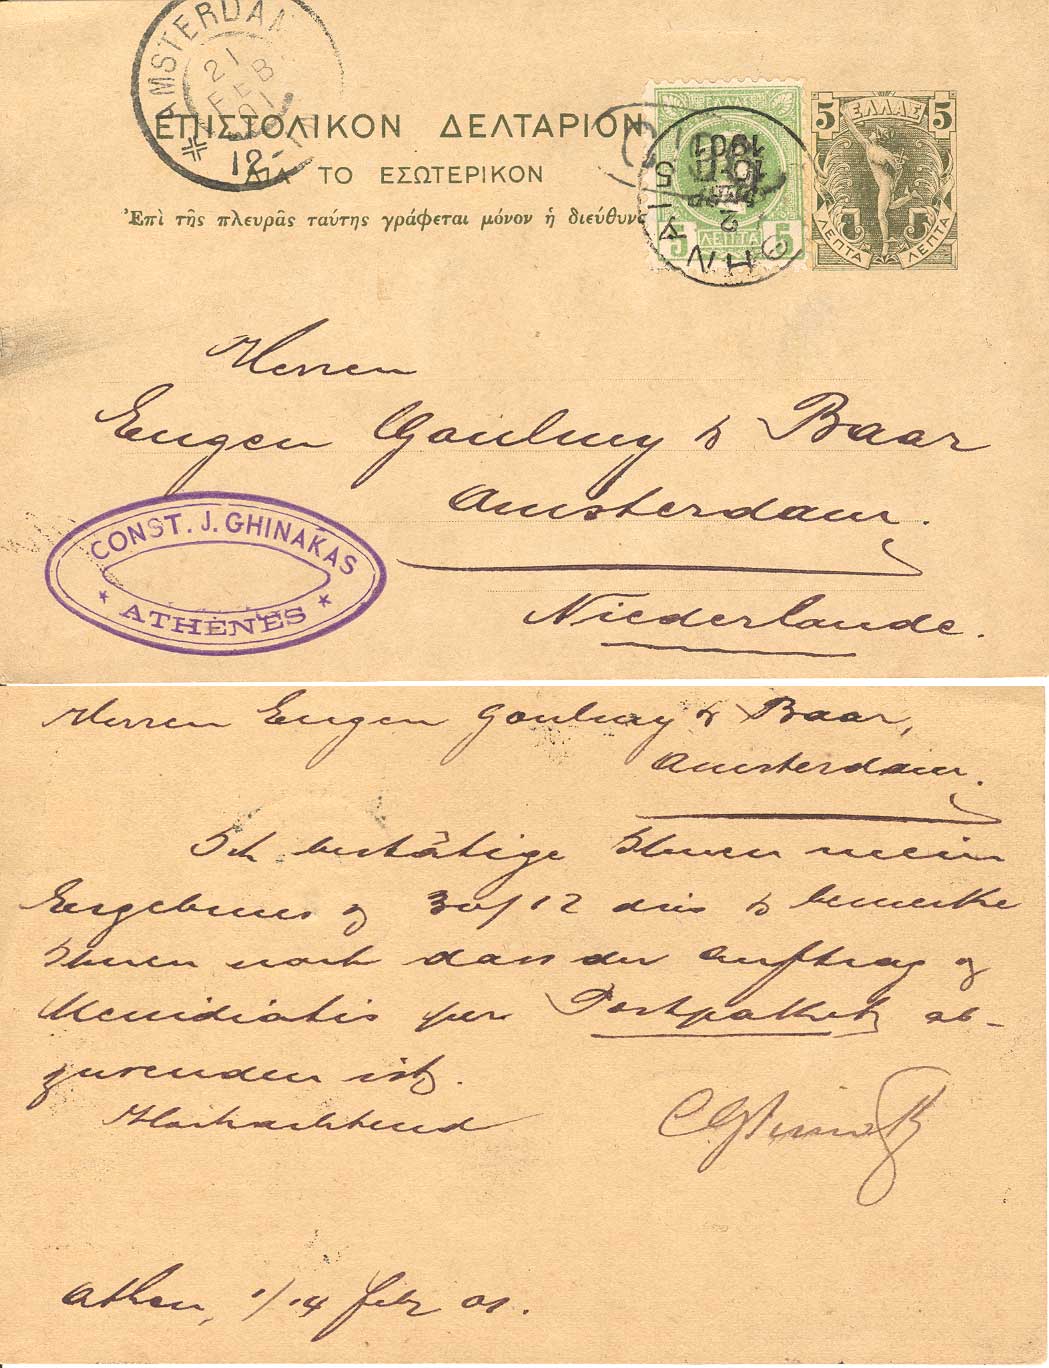 AMSTERDAM
21
FEB
01
12-
ΕΠΙΣΤΟΛΙΚΟΝ ΔΕΛΤΑΡΙΟΝ
ΔΙΑ ΤΟ ΕΣΩΤΕΡΙΚΟΝ
Ἐπὶ τῆς πλευρᾶς ταύτης γράφεται μόνον ἡ διεύθυνσ
5 ΛΕΠΤΑ 5
ΑΘΗΝΑΙ 5
2
1901
5 ΕΛΛΑΣ 5
5 5
ΛΕΠΤΑ ΛΕΠΤΑ
Herren
Eugen Goulmy & Baar
Amsterdam.
Niederlande.
CONST. J. GHINAKAS
* ATHÈNES *
Herren Eugen Goulmy & Baar,
Amsterdam.
Ich bestätige Ihnen mein
Ergebenes 30/12 & bemerke
Ihnen noch dass der Auftrag
per Postpaket ab-
zusenden ist.
Hochachtend
Athen, 1/14 Febr 01.